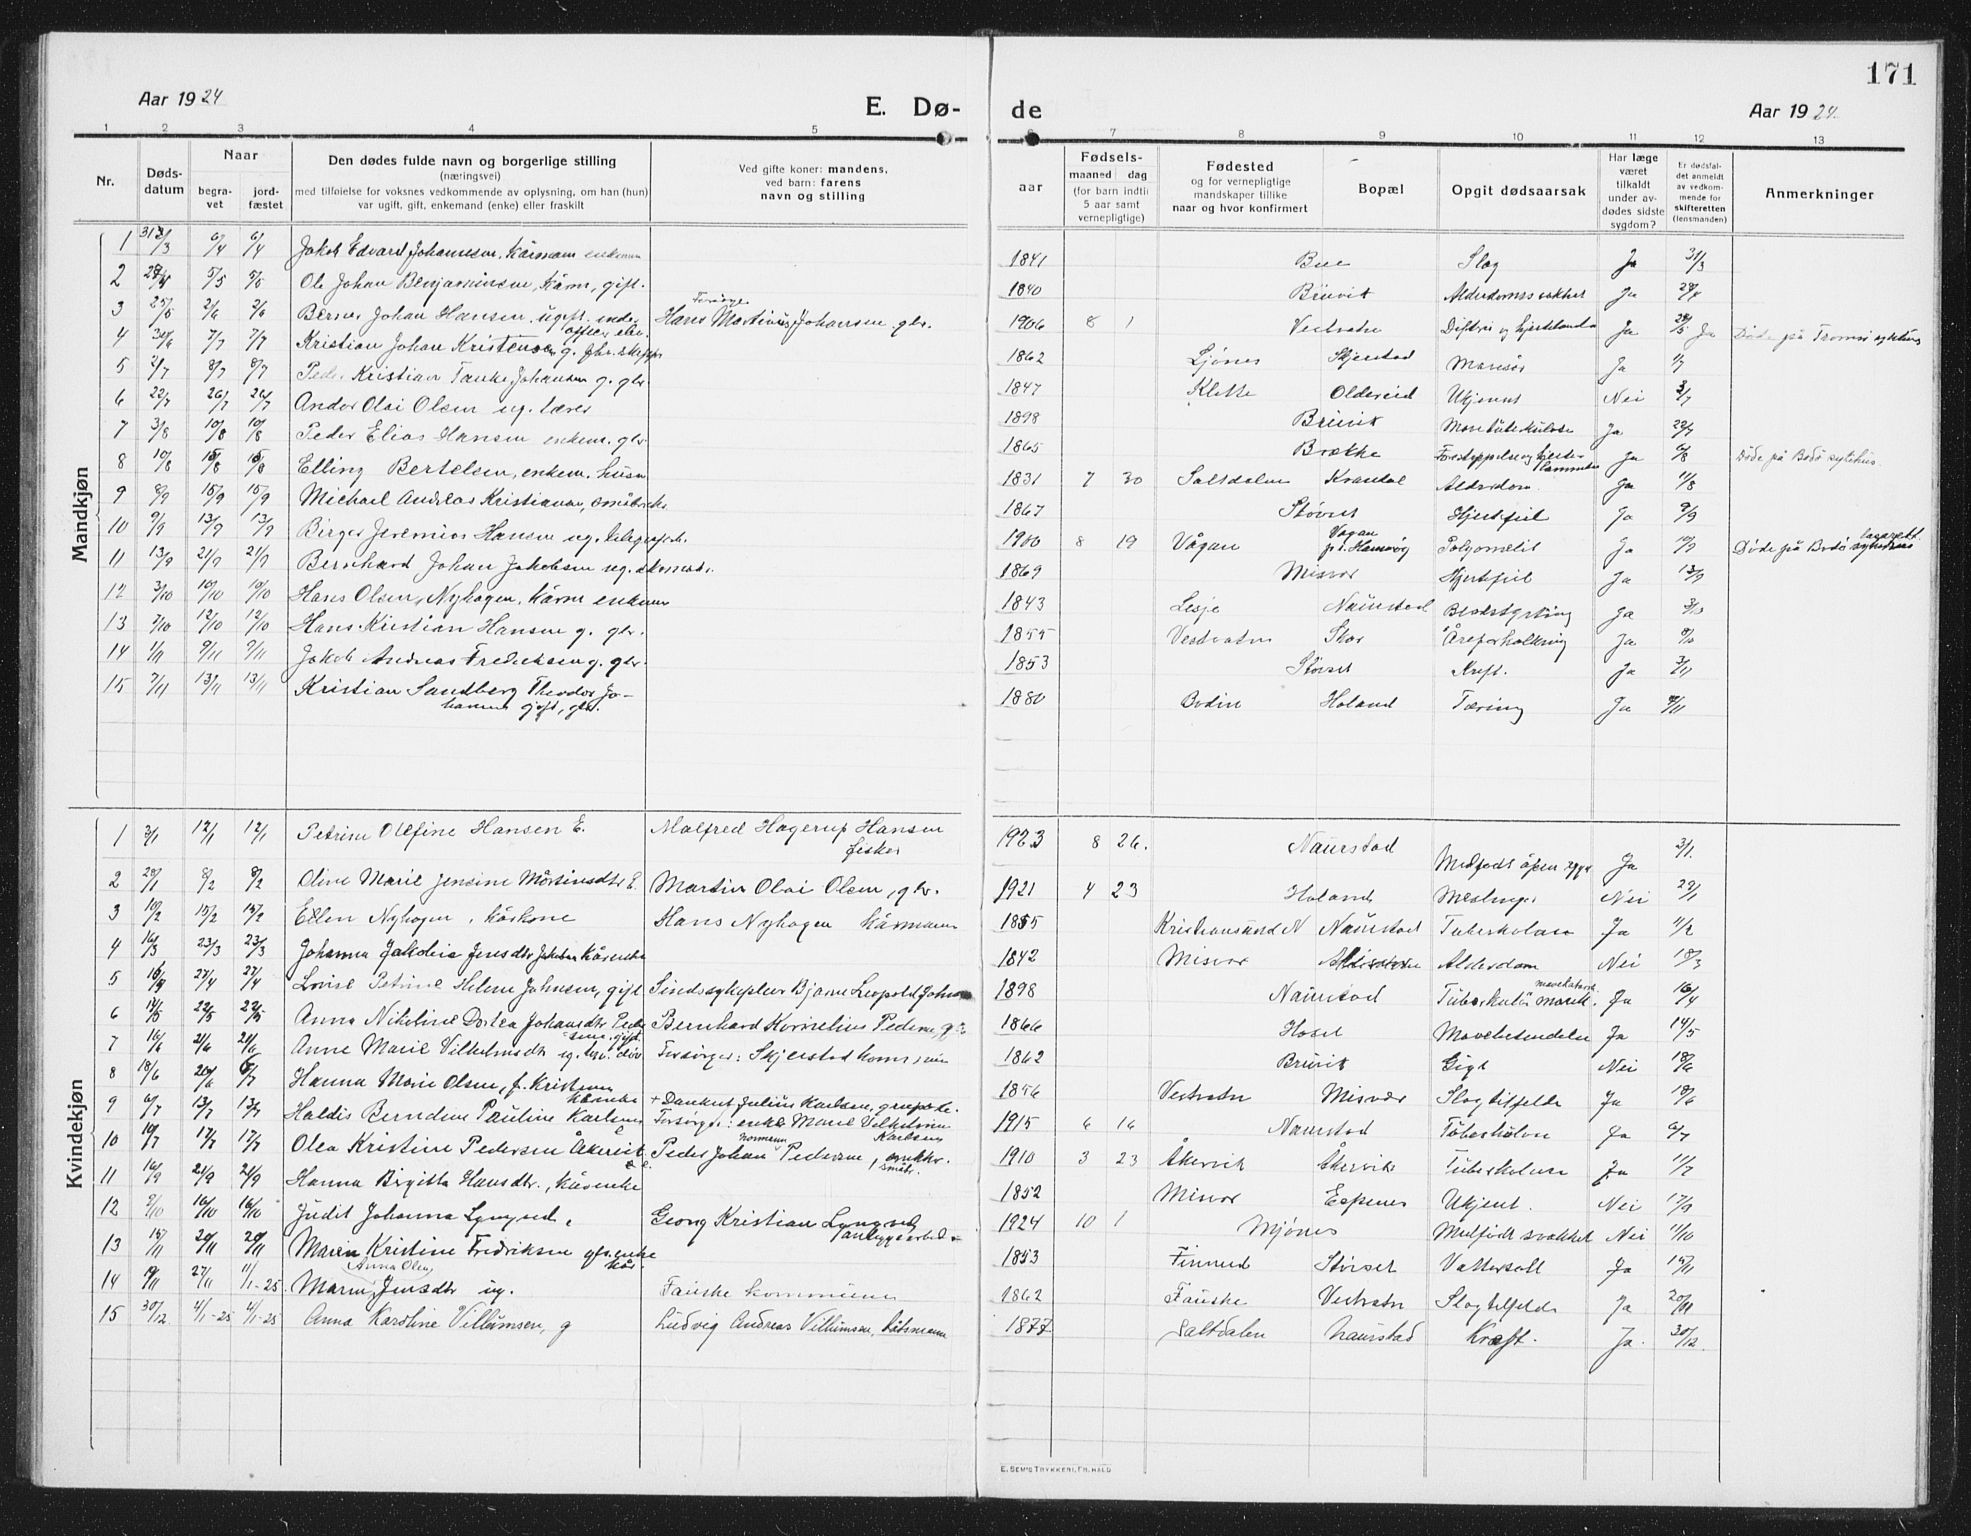 171
Aar 1924
E. Dø-
de
Aar 1924.
1 2 3 4 5 6 7 8 9 10 11 12 13
Nr.
Døds-
datum
Naar
begra-
vet
jord-
fæstet
Den dødes fulde navn og borgerlige stilling
(næringsvei)
med tilføielse for voksnes vedkommende av oplysning, om han (hun)
var ugift, gift, enkemand (enke) eller fraskilt
Ved gifte koner: mandens,
ved barn: farens
navn og stilling
Fødsels-
aar
maaned dag
(for barn indtil
5 aar samt
vernepligtige)
Fødested
og for vernepligtige
mandskaper tillike
naar og hvor konfirmert
Bopæl
Opgit dødsaarsak
Har læge
været
tilkaldt
under av-
dødes sidste
sygdom?
Er dødsfal-
det anmeldt
av vedkom-
mende for
skifteretten
(lensmanden)
Anmerkninger
Mandkjøn
1 6/4 6/4 Jakob Edvard Johanssen, Kårmann enkem 1841 Bue Slag Ja 31/3
2 5/5 5/5 Ole Johan Benjaminsen, Kårm, gift. 1840 Bruvik Alderdomssvakhet Ja
3 25/5 2/6 2/6 Berner Johan Hansen ugift under- Forsørger
officer elev. Hans Martinus Johansen gbr. 1906 8 1 Vestvatn Difteri og hjertelamhet Ja Ja Døde på Tromsø sykehus
4 30/6 7/7 7/7 Kristian Johan Kristensen g. fhv. skipper 1862 Ljønes Skjerstad Marasør Ja
5 2/7 8/7 8/7 Peder Kristian Tanke Johansen g. gbr. 1847 Klette Oldereid Ukjennt Nei 3/7
6 22/7 26/7 26/7 Andor Olai Olsen ug. lærer 1898 Bruvik Mavetuberkulose Ja
7 3/8 10/8 10/8 Peder Elias Hansen enkem. gbr 1865 Brække Ja Døde på Bodø sykehus.
8 10/8 15/8 15/8 Elling Bertelsen, enkem. husm 1831 7 30 Saltdalen Kvandal Alderdom. Ja 11/8
9 8/9 15/9 15/9 Michael Andreas Kristiansen, småbruker 1867 Støvset Hjertefeil Ja 9/9
10 9/9 13/9 13/9 Birger Jeremias Hansen ug. telegrafist. 1900 8 19 Vågan Vågan Ja 10/9 Døde på Bodø lasarett
11 13/9 21/9 21/9 Bernhard Johan Jakobsen ug. skomak. 1869 Misvær Hjertefeil Ja 13/9
12 3/10 10/10 10/10 Hans Olsen, Nyhagen, kårm enkem 1843 Lesje Naurstad Blodstyrtning Ja 3/10
13 7/10 12/10 12/10 Hans Kristian Hansen g. gbr. 1855 Vestvatn Skar Åreforkalkning Ja
14 1/11 9/11 9/11 Jakob Andreas Fredriksen g. gbr. 1853 Støvset Kreft. Ja 3/11
15 7/11 13/11 13/11 Kristian Sandberg Theodor Jo-
hansen gift, gbr. 1880 Bodin Holand Tæring Ja
Kvindekjøn
1 3/1 12/1 12/1 Petrine Olefine Hansen E. Malfred Hagerup Hansen
fisker 1923 8 26. Naurstad Medfødt åpen rygg Ja 3/1.
2 8/2 8/2 Oline Marie Jensine Mortinsdtr E. Martin Olai Olsen, gbr. 1921 4 23 Holand Meslinger Nei
3 10/2 15/2 15/2 Ellen Nyhagen, kårkone Hans Nyhagen kårmann 1855 Kristiansund N Naurstad Tuberkulose Ja 11/2
4 16/3 23/3 23/3 Johanna Jakobia Jensdtr Jakobsen Kårenke 1842 Misvær Alderdom Nei 18/3
5 27/4 27/4 Lovise Petrine Helene Johnsen, gift Sindssykepleier Bjarne Leopold Johnsen 1898 Naurstad Tuberkuløs mavekatarrh Ja 16/4
6 13/5 22/5 22/5 Anna Nikoline Dortea Johansdtr Peder-
sen. gift Bernhard Kornelius Pedersen, gbr 1866 Hoset Mavebetendelse Ja 14/5
7 16/6 21/6 21/6 Anne Marie Vilhelmsdtr ug. Forsørger: Skjerstad kommune 1862 Bruvik Gigt Nei 18/6
8 18/6 Hanna Marie Olsen, f. Kristensen
kårenke 1856 Vestvatn Misvær Slagtilfelde Ja 18/6
9 6/7 13/7 13/7 Haldis Berndine Pauline Karlsen + Dankert Julius Karlsen,
Forsørger: enke Marie Vilhelmine
Karlsen 1915 6 16 Naurstad Tuberkulose Ja 6/7
10 10/7 17/7 17/7 Olea Kristine Pedersen Åkervik Peder Johan Normann Pedersen, småbr. 1910 3 23 Åkervik Åkervik Tuberkulose Ja 11/7
11 16/9 21/9 21/9 Hanna Birgitta Hansdtr., kårenke 1852 Misvær Espenes Ukjent. Nei 17/9
12 9/10 16/10 16/10 Judit Johanna Lyngved, Georg Kristian Lyngved
anlæggsarbeid. 1924 10 1 Mjønes Medfødt svakhet Nei 11/10
13 15/11 20/11 20/11 Maren Kristine Fredriksen gfr. enke
kår. 1853 Finneid Støvset Vattersott Ja 15/11
14 19/11 27/11 11/1-25 Maren Anna Olea Jensdtr ug. Fauske kommune 1862 Fauske Vestvatn Slagtilfelde Ja 20/11
15 30/12 4/1-25 4/1-25 Anna Karoline Villumsen, g Ludvig Andreas Villumsen, båtsmann 1877 Saltdalen Naurstad Kræft. Ja. 30/12
E. SEM'S TRYKKERI, FR.HALD